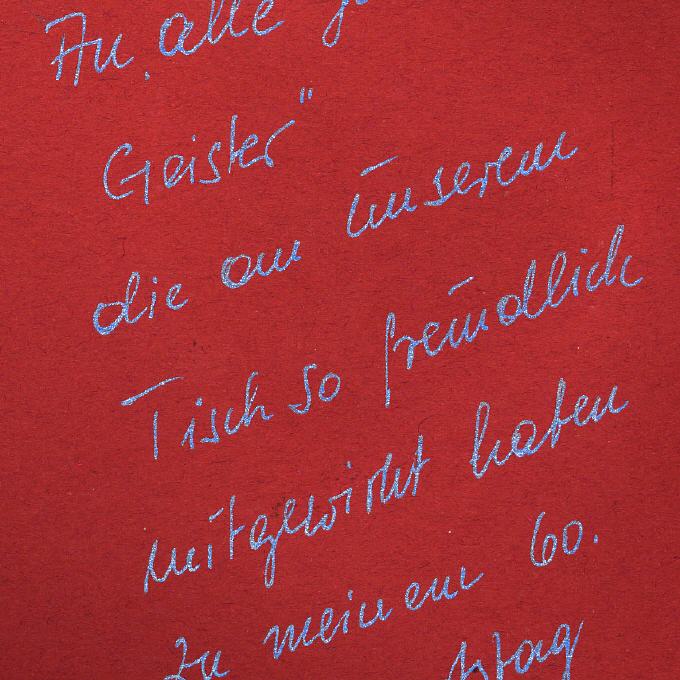 An alle
Geister"
die an unserem
Tisch so freundlich
mitgewirkt haben
zu meinem 60.